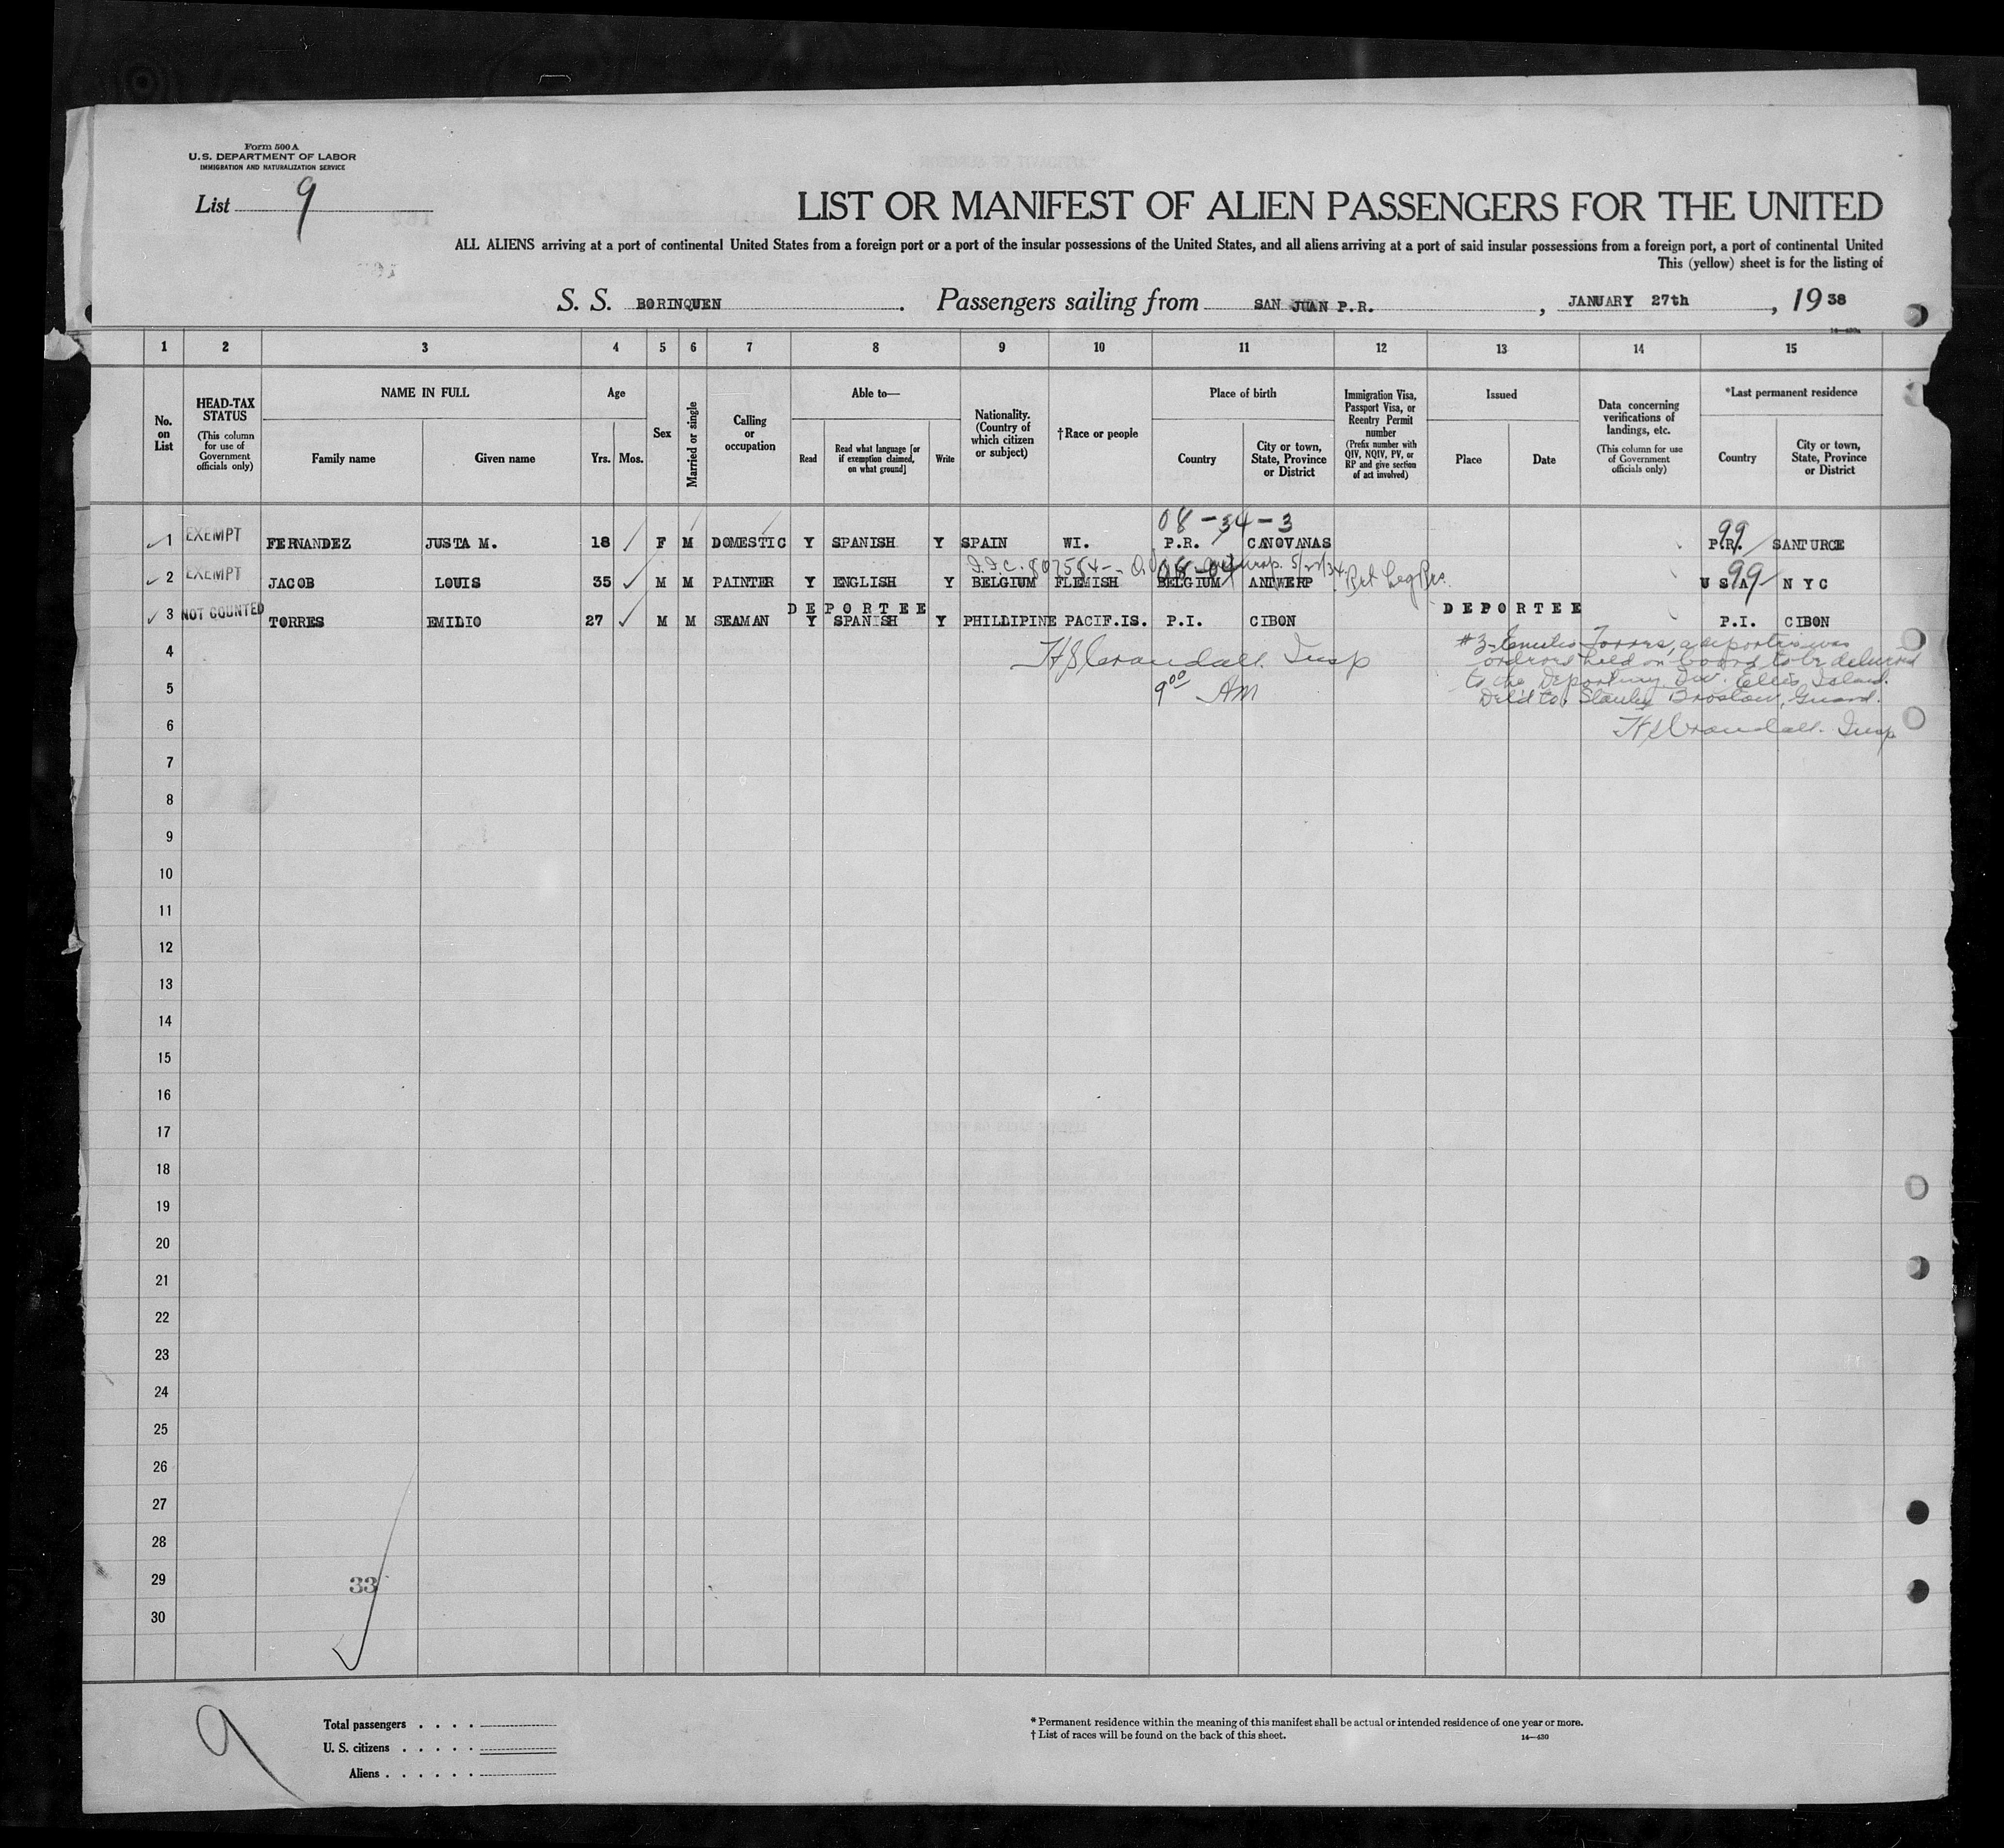 Form 500 A
U. S. DEPARTMENT OF LABOR
IMMIGRATION AND NATURALIZATION SERVICE
List 9
LIST OR MANIFEST OF ALIEN PASSENGERS FOR THE UNITED
ALL ALIENS arriving at a port of continental United States from a foreign port or a port of the insular possessions of the United States, and all aliens arriving at a port of said insular possessions from a foreign port, a port of continental United
This (yellow) sheet is for the listing of
S. S. BORINQUEN . Passengers sailing from SAN JUAN P.R. , JANUARY 27th , 19 38
1 2 3 4 5 6 7 8 9 10 11 12 13 14 15
No. on List
HEAD-TAX STATUS (This column for use of Government officials only)
NAME IN FULL
Family name Given name
Age
Yrs. Mos.
Sex
Married or single
Calling or occupation
Able to—
Read
Read what language [or if exemption claimed, on what ground]
Write
Nationality. (Country of which citizen or subject)
†Race or people
Place of birth
Country
City or town, State, Province or District
Immigration Visa, Passport Visa, or Reentry Permit number (Prefix number with QIV, NQIV, PV, or RP and give section of act involved)
Issued
Place Date
Data concerning verifications of landings, etc. (This column for use of Government officials only)
*Last permanent residence
Country
City or town, State, Province or District
08-34-3
1 EXEMPT FERNANDEZ JUSTA M. 18 F M DOMESTIC Y SPANISH Y SPAIN WI. P.R. CANOVANAS P.R. 99 SANTURCE
2 EXEMPT JACOB LOUIS 35 M M PAINTER Y ENGLISH Y BELGIUM FLEMISH BELGIUM ANTWERP U S A 99 N Y C
DEPORTEE DEPORTEE
3 NOT COUNTED TORRES EMILIO 27 M M SEAMAN Y SPANISH Y PHILLIPINE PACIF.IS. P.I. CIBON P.I. CIBON
4 H S Crandall. Insp
9 00 AM
#3-Emilio Torres, a deportee was
ordered held on board to be delivered
to the Deporting Div. Ellis Island.
Del'd to Stanley Guard.
H S Crandall. Insp
5
6
7
8
9
10
11
12
13
14
15
16
17
18
19
20
21
22
23
24
25
26
27
28
29
30
33
9
Total passengers . . . .
U. S. citizens . . . . .
Aliens . . . . . .
* Permanent residence within the meaning of this manifest shall be actual or intended residence of one year or more.
† List of races will be found on the back of this sheet.
14—430